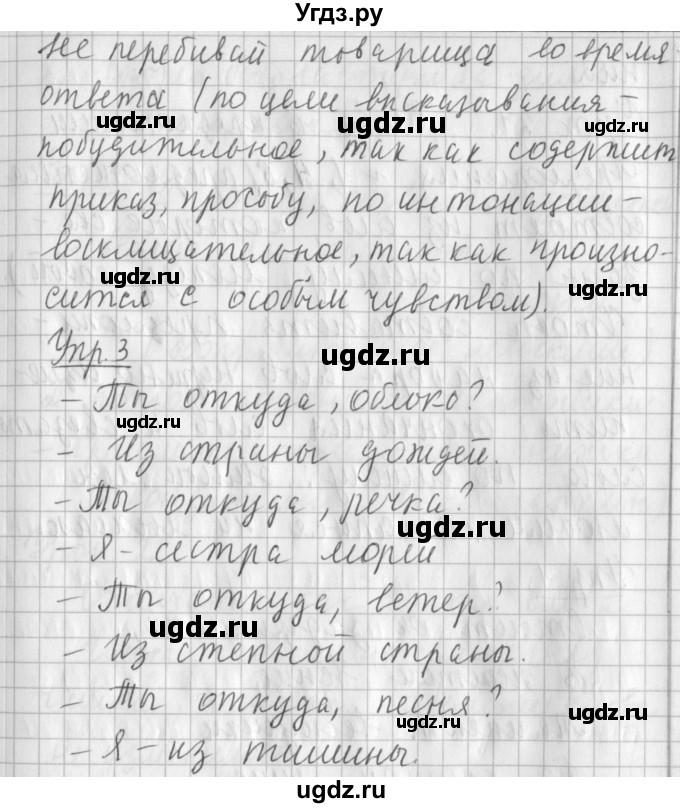 Угдз.ру
не перебивай товарища во время
ответа (по цели высказывания -
ugdz.ru ugdz.ru ugdz.ru
побудительное, так как содержит
приказ, просьбу, по интонации -
восклицательное, так как произно-
ugdz.ru ugdz.ru
сится с особым чувством).
Упр. 3
ugdz.ru
- Ты откуда, облако?
ugdz.ru
- Из страны дождей.
- Ты откуда, речка?
ugdz.ru
- Я - сестра морей
- Ты откуда, ветер?
ugdz.ru
- Из степной страны.
- Ты откуда, песня?
ugdz.ru
- Я - из тишины.
ugdz.ru